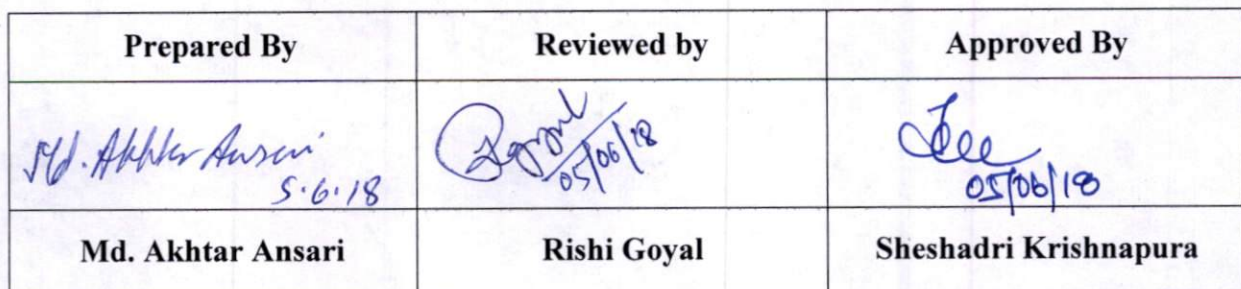 Prepared By Reviewed by Approved By
Md. Akhtar Ansari
5.6.18
05/06/18
05/06/18
Md. Akhtar Ansari Rishi Goyal Sheshadri Krishnapura